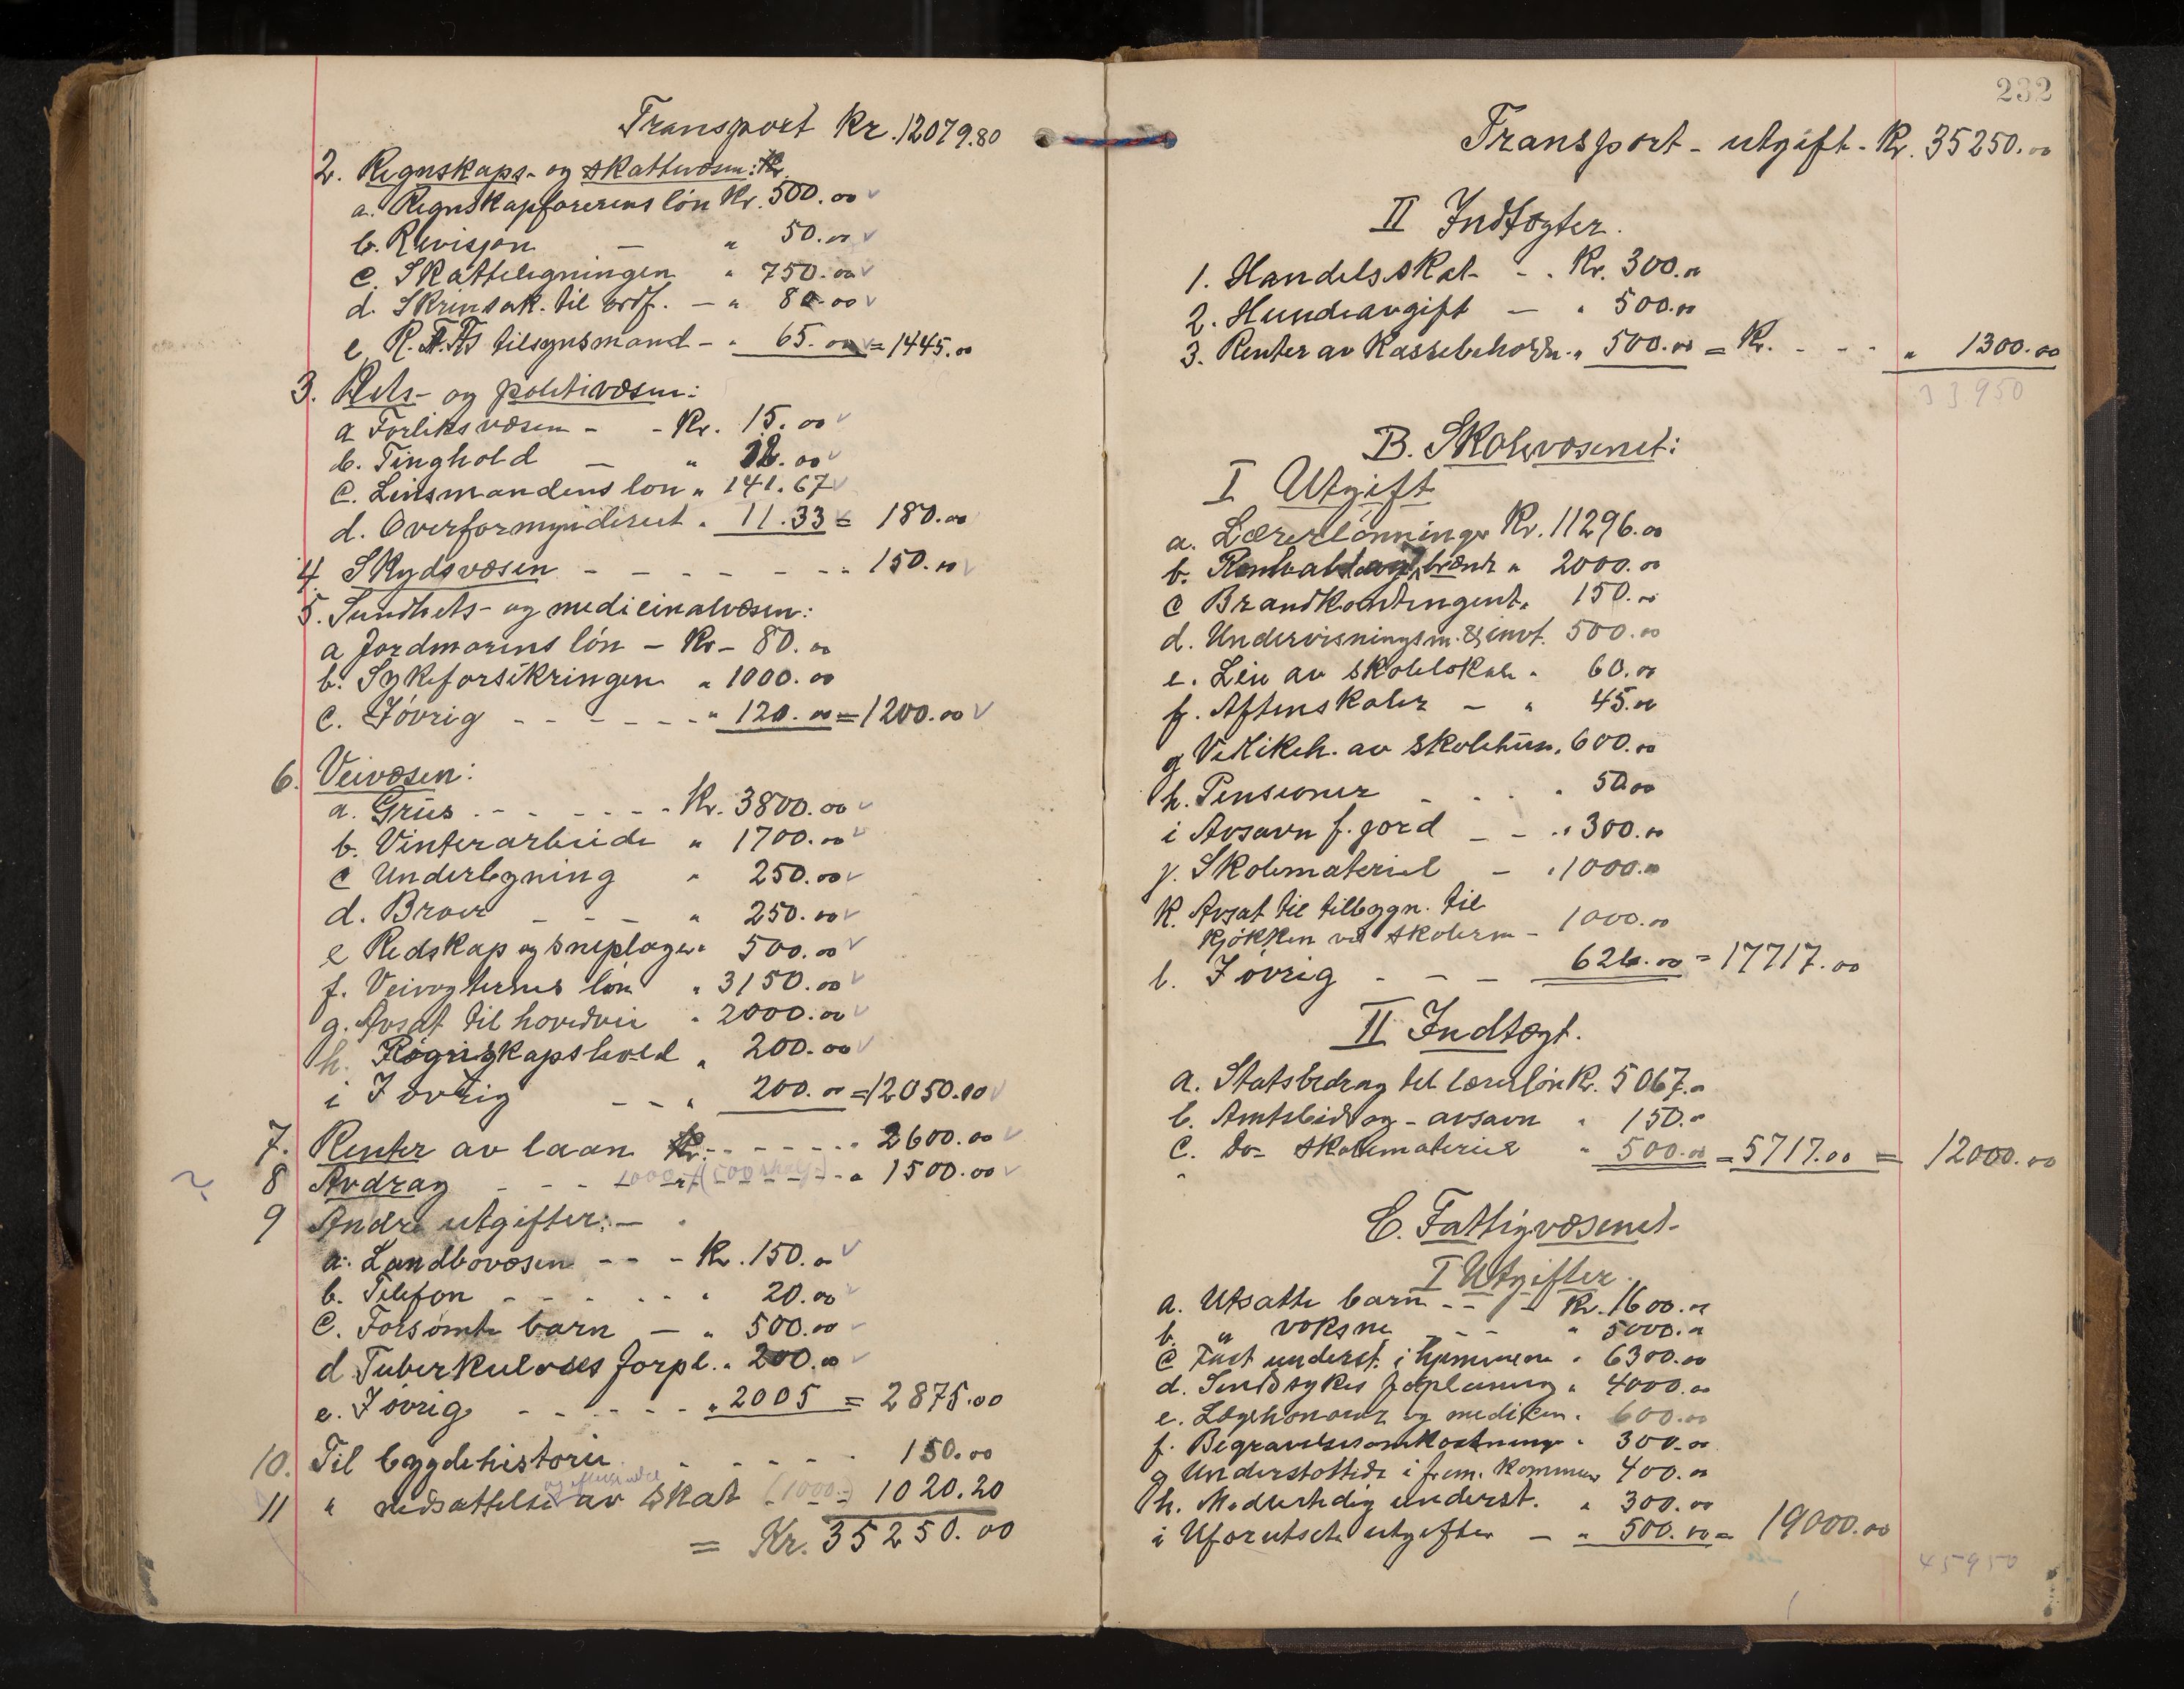 Transport Kr. 12079.80
2. Regnskaps- og skattevæsen:
a. Regnskapsførerens løn Kr. 500.00 ✓
b. Revisjon — " 50.00 ✓
c. Skatteligningen " 750.00 ✓
d. til ordf. — " 80.00 ✓
e. tilsynsmand - " 65.00 = 1445.00
3. Rets- og politivæsen:
a Forliksvæsen - - Kr. 15.00 ✓
b. Tinghold — " 12.00 ✓
c. Lensmandens løn " 141.67 ✓
d. Overformynderiet " 11.33 = 180.00
4. Skydsvæsen - - - - - - - 150.00 ✓
5. Sundhets- og medicinalvæsen:
a Jordmorens løn — Kr - 80.00
b. Sykeforsikringen " 1000.00
c. Iøvrig - - - - - - " 120.00 = 1200.00 ✓
6. Veivæsen:
a. Grus - - - - - - Kr. 3800.00 ✓
b. Vinterarbeide " 1700.00 ✓
c Underlegning " 250.00 ✓
d. Broer - - - " 250.00 ✓
e Redskap og sneploger " 500.00 ✓
f. Veivogternes løn " 3150.00 ✓
g. Avsat til hovedvei " 2000.00 ✓
h. Regnskapshold " 200.00 ✓
i Iøvrig - - " 200.00 = 12050.00 ✓
7. Renter av laan - - - - - - 2600.00 ✓
8 Avdrag - - - - - - - " 1500.00 ✓
9 Andre utgifter: —
a. Landbovæsen - - - Kr. 150.00 ✓
b. Telefon - - - - - - " 20.00 ✓
c. Forsømte barn — " 500.00 ✓
d Tuberkuloses forpl. " 200.00 ✓
e. Iøvrig - - - - - " 2005 = 2875.00
10. Til bygdehistorie - - - - - 150.00
og eftergivelse
11 " nedsættelse av skat (1000.-) 1020.20
= Kr. 35250.00
232
Transport - utgift - Kr. 35250.00
II Indtægter.
1. Handelsskat - . Kr. 300.00
2. Hundeavgift — " 500.00
3. Renter av kassebeholdn. " 500.00 = Kr. - - - " 1300.00
33950
B. Skolevæsenet:
I Utgift
a. Lærerlønninger Kr. 11296.00
b. Renhold og brænde " 2000.00
c Brandkontingent " 150.00
d. Undervisningsm. & invt. 500.00
e. Leie av skolelokale " 60.00
f. Aftenskoler — " 45.00
g Vedlikeh. av skolehus " 600.00
h. Pensioner - - - " 50.00
i Avsavn f. jord - - " 300.00
j. Skolemateriel — " 1000.00
k. Avsat til tilbygn. til
kjøkken ved skolerne - 1000.00
l. Iøvrig - - - 626.00 = 17717.00
II Indtægt.
a. Statsbidrag til lærerløn Kr. 5067.00
b. Amtsbidrag - avsavn " 150.00
c. do - skolemateriel " 500.00 = 5717.00 = 12000.00
C. Fattigvæsenet
I Utgifter.
a. Utsatte barn - - - Kr. 1600.00
b. " voksne - - " 5000.00
c Fast underst. i hjemmene " 6300.00
d. Sindssykes forpleining " 4000.00
e. Lægehonorar og medicin " 600.00
f. Begravelsesomkostninger " 300.00
g Understøttede i frem. kommuner 400.00
h. Midlertidig underst. " 300.00
i Uforutsete utgifter — " 500.00 = 19000.00
45950